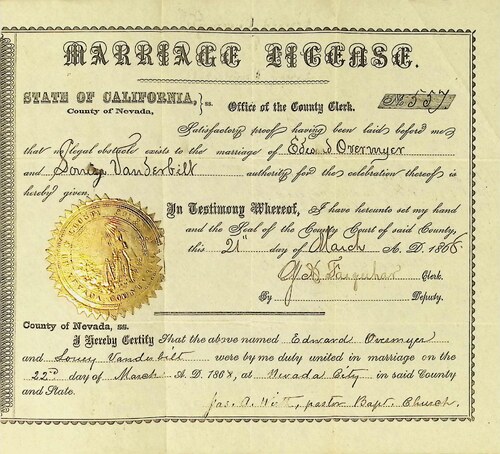 MARRIAGE LICENSE.
STATE OF CALIFORNIA, } ss. Office of the County Clerk. No. 557
County of Nevada,
Satisfactory proof having been laid before me
that no legal obstacle exists to the marriage of Edward Overmyer
and Louey Vanderbilt authority for the celebration thereof is
hereby given.
In Testimony Whereof, I have hereunto set my hand
and the Seal of the County Court of said County,
this 21st day of March A. D. 1868
Farquhar Clerk.
By Deputy.
County of Nevada, ss.
I Hereby Certify That the above named Edward Overmyer
and Louey Vanderbilt were by me duly united in marriage on the
22nd day of March A. D. 1868, at Nevada City in said County
and State.
Jas. A. pastor Bapt. Church.